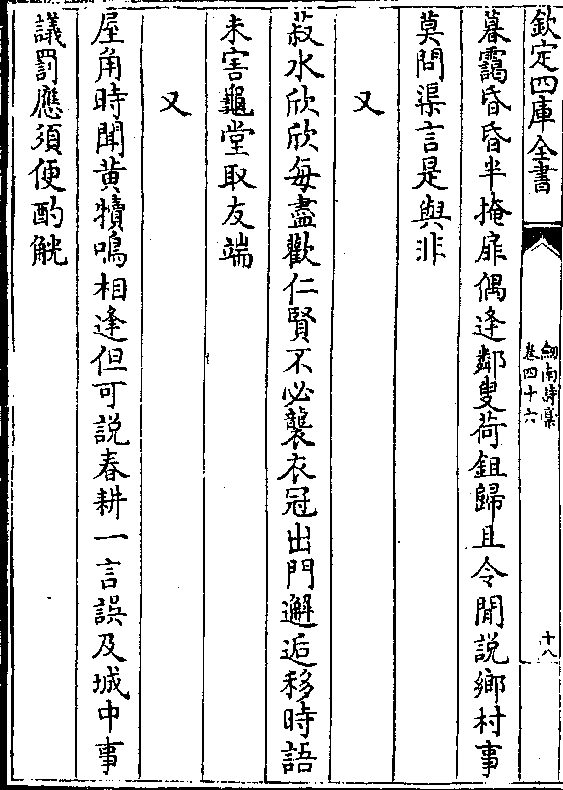 欽定四庫全書
劔南詩槀
卷四十六
十八
暮靄昏昏半掩扉偶逢鄰叟荷鉏歸且令閒説鄉村事
莫問渠言是與非
又
菽水欣欣每盡歡仁賢不必襲衣冠出門邂逅移時語
未害龜堂取友端
又
屋角時聞黄犢鳴相逢但可説春耕一言誤及城中事
議罰應須便酌觥